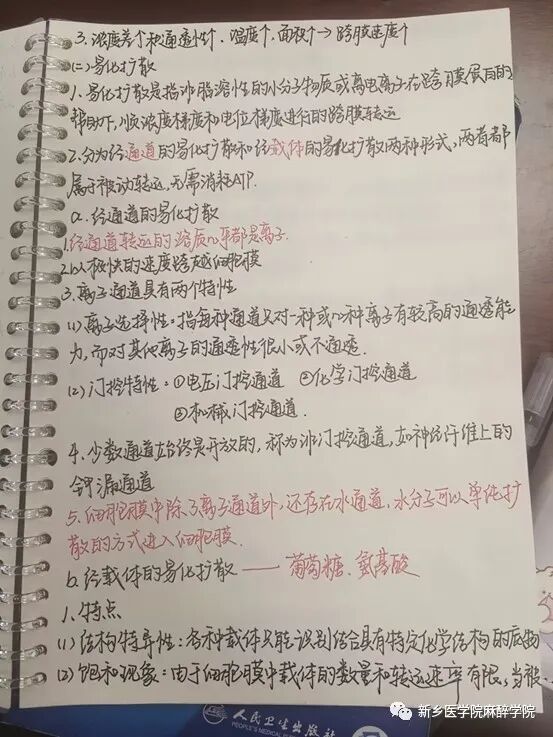 3. 浓度差↑和通透性↑、温度↑、面积↑→跨膜速度↑
(二)易化扩散
1. 易化扩散是指非脂溶性的小分子物质或离电离子在跨膜蛋白的
帮助下,顺浓度梯度和电位梯度进行的跨膜转运
2. 分为经通道的易化扩散和经载体的易化扩散两种形式,两者都
属于被动转运,无需消耗ATP.
a. 经通道的易化扩散
1. 经通道转运的溶质几乎都是离子.
2. 以极快的速度跨越细胞膜
3. 离子通道具有两个特性
(1) 离子选择性:指每种通道只对一种或几种离子有较高的通透能
力,而对其他离子的通透性很小或不通透.
(2) 门控特性:①电压门控通道 ②化学门控通道
③机械门控通道.
4. 少数通道始终是开放的,称为非门控通道,如神经纤维上的
钾漏通道
5. 细胞膜中除了离子通道外,还存在水通道,水分子可以单纯扩
散的方式进入细胞膜.
b. 经载体的易化扩散 —— 葡萄糖、氨基酸
1. 特点
(1) 结构特异性:各种载体只能识别结合具有特定化学结构的底物
(2) 饱和现象:由于细胞膜中载体的数量和转运速率有限,当被
人民卫生出版社
PEOPLE'S MEDICAL PUBLISHING HOUSE
新乡医学院麻醉学院